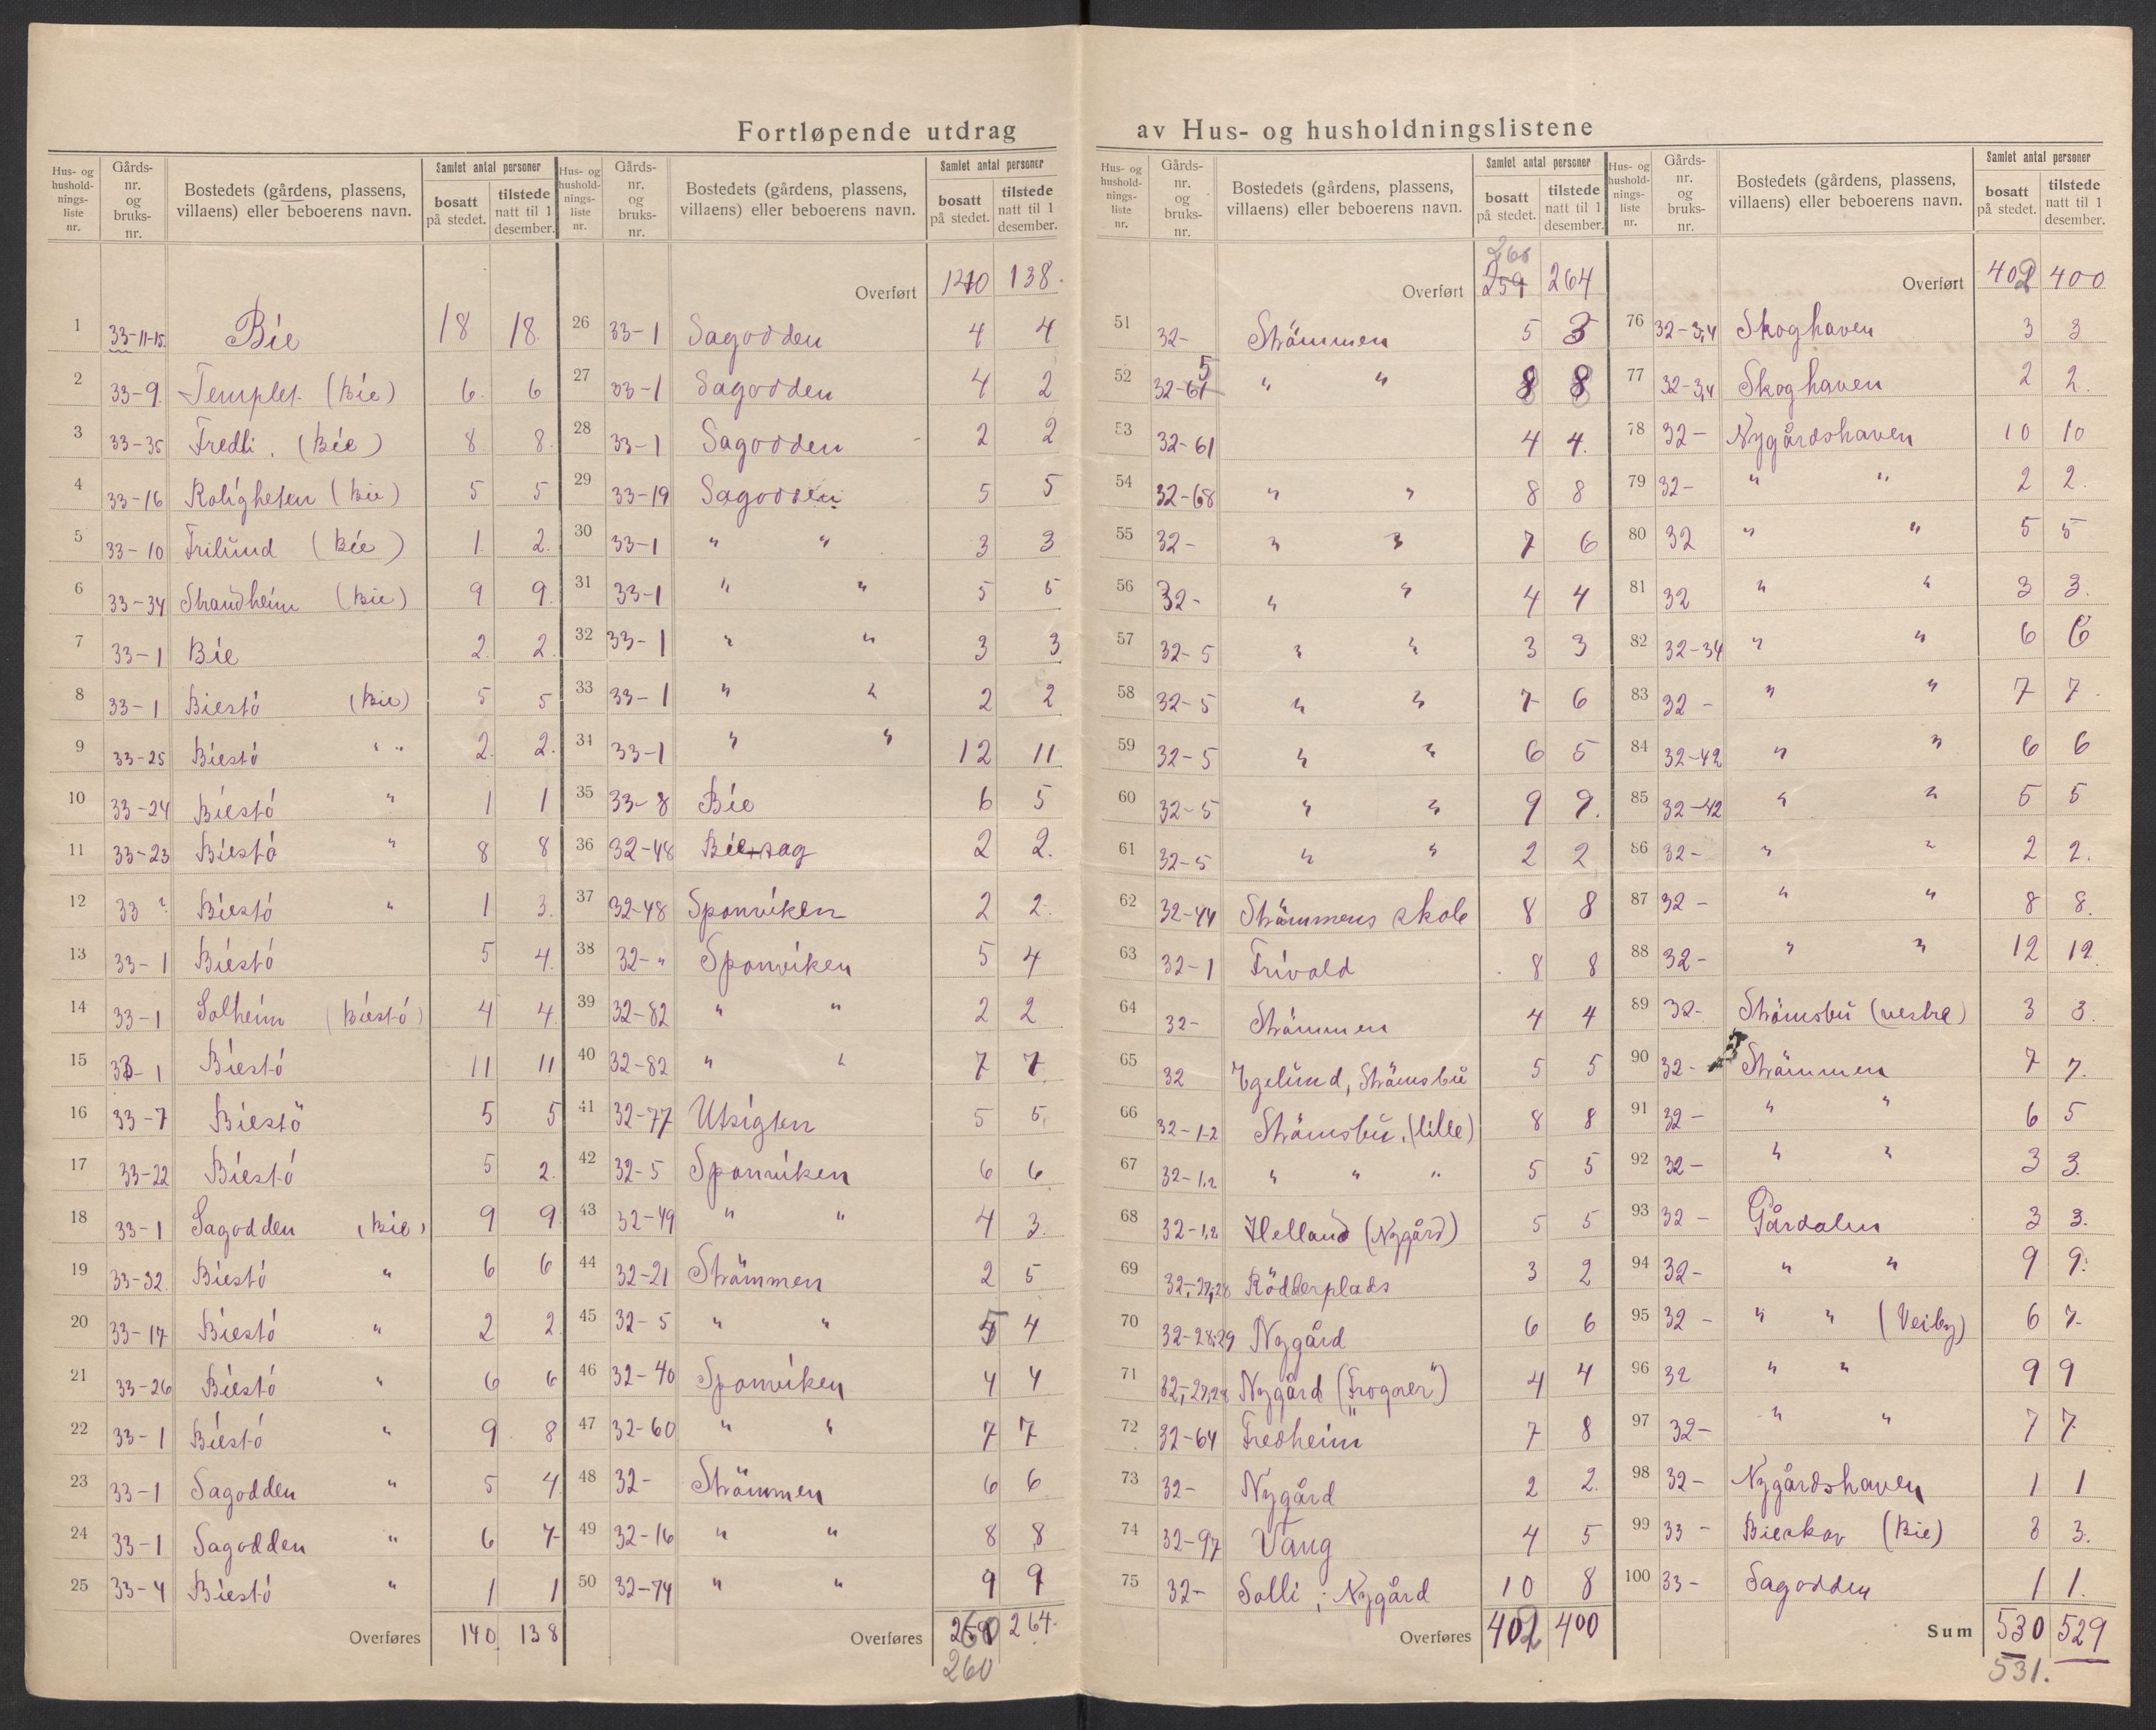 Fortløpende utdrag av Hus- og husholdningslistene
Hus- og husholdnings-liste nr. | Gårds-nr. og bruks-nr. | Bostedets (gårdens, plassens, villaens) eller beboerens navn. | Samlet antal personer | bosatt på stedet. | tilstede natt til 1 desember.
1 33-11-15. Bie 18 18.
2 33-9. Templet. (Bie) 6. 6
3 33-35 Fredli. (Bie) 8 8.
4 33-16 Roligheten (Bie) 5 5
5 33-10 Frilund (Bie) 1. 2.
6 33-34 Strandheim (Bie) 9 9.
7 33-1 Bie 2. 2.
8 33-1 Biestö (Bie) 5 5
9 33-25 Biestö " " 2. 2.
10 33-24 Biestö " 1 1
11 33-23 Biestö " 8 8
12 33 ? Biestö " 1 3.
13 33-1 Biestö 5 4.
14 33-1 Solheim (Biestö) 4 4.
15 33-1 Biestö 11 11
16 33-7 Biestö 5 5
17 33-22 Biestö 5 2.
18 33-1 Sagodden (Bie) 9 9
19 33-32. Biestö " 6 6
20 33-17 Biestö " 2 2
21 33-26 Biestö " 6 6
22 33-1 Biestö " 9 8
23 33-1 Sagodden " 5 4
24 33-1 Sagodden " 6 7
25 33-4 Biestö " 1 1
Overføres 140 138
Hus- og husholdnings-liste nr. | Gårds-nr. og bruks-nr. | Bostedets (gårdens, plassens, villaens) eller beboerens navn. | Samlet antal personer | bosatt på stedet. | tilstede natt til 1 desember.
Overført 140 138.
26 33-1 Sagodden 4 4
27 33-1 Sagodden 4 2
28 33-1 Sagodden 2 2
29 33-19 Sagodden 5 5
30 33-1 " " 3 3
31 33-1 " " 5 5
32 33-1 " " 3 3
33 33-1 " " 2 2
34 33-1 " " 12 11
35 33-8 Bie 6 5
36 32-48 Bie sag 2 2.
37 32-48 Sponviken 2 2.
38 32-" Sponviken 5 4
39 32-82 " " 2 2
40 32-82 " " 7 7
41 32-77 Utsigten 5 5.
42 32-5 Sponviken 6 6
43 32-49 " " 4 3.
44 32-21 Strömmen 2 5
45 32-5 " " 5 4
46 32-40 Sponviken 4 4
47 32-60 " " 7 7
48 32- Strömmen 6 6
49 32-16 " " 8 8
50 32-74 " " 9 9
Overføres 260 264.
260
Hus- og husholdnings-liste nr. | Gårds-nr. og bruks-nr. | Bostedets (gårdens, plassens, villaens) eller beboerens navn. | Samlet antal personer | bosatt på stedet. | tilstede natt til 1 desember.
260
Overført 259 264
51 32- Strömmen 5 3
52 32-61 5 " " 8 8
53 32-61 4 4.
54 32-68 " " 8 8
55 32- " " 7 6
56 32- " " 4 4
57 32-5 " " 3 3
58 32-5 " " 7 6
59 32-5 " " 6 5
60 32-5 " " 9 9.
61 32-5 " " 2 2
62 32-44 Strömmens skole 8 8
63 32-1 Frivold 8 8
64 32- Strömmen 4 4
65 32 Egelund, Strömsbu 5 5
66 32-1-2 Strömsbu. (lille) 8 8
67 32-1,2 " " " 5 5
68 32-1,2 Helland (Nygård) 5 5
69 32-,27,28 Rödberplads 3 2
70 32-28,29 Nygård 6 6
71 32-,27,28 Nygård ("Frogner") 4 4
72 32-64 Fredheim 7 8
73 32- Nygård 2 2.
74 32-97 Vang 4 5
75 32- Solli; Nygård 10 8
Overføres 402 400
Hus- og husholdnings-liste nr. | Gårds-nr. og bruks-nr. | Bostedets (gårdens, plassens, villaens) eller beboerens navn. | Samlet antal personer | bosatt på stedet. | tilstede natt til 1 desember.
Overført 402 400
76 32-3,4 Skoghaven 3 3
77 32-3,4 Skoghaven 2 2.
78 32- Nygårdshaven 10 10
79 32- " " 2 2.
80 32 " " 5 5
81 32 " " 3 3.
82 32-34 " " 6 6
83 32- " " 7 7.
84 32-42 " " 6 6
85 32-42 " " 5 5
86 32- " " 2 2.
87 32- " " 8 8.
88 32- " " 12 12.
89 32- Strömsbu (vestre) 3 3.
90 32- Strömmen 7 7.
91 32- " " 6 5
92 32- " " 3 3.
93 32- Gårdalen 3 3.
94 32- " " 9 9.
95 32- " " (Veiby) 6 7.
96 32 " " 9 9
97 32- " " 7 7.
98 32- Nygårdshaven 1 1
99 33- Bieskar (Bie) 3 3.
100 33- Sagodden 1 1.
Sum 530 529
531.